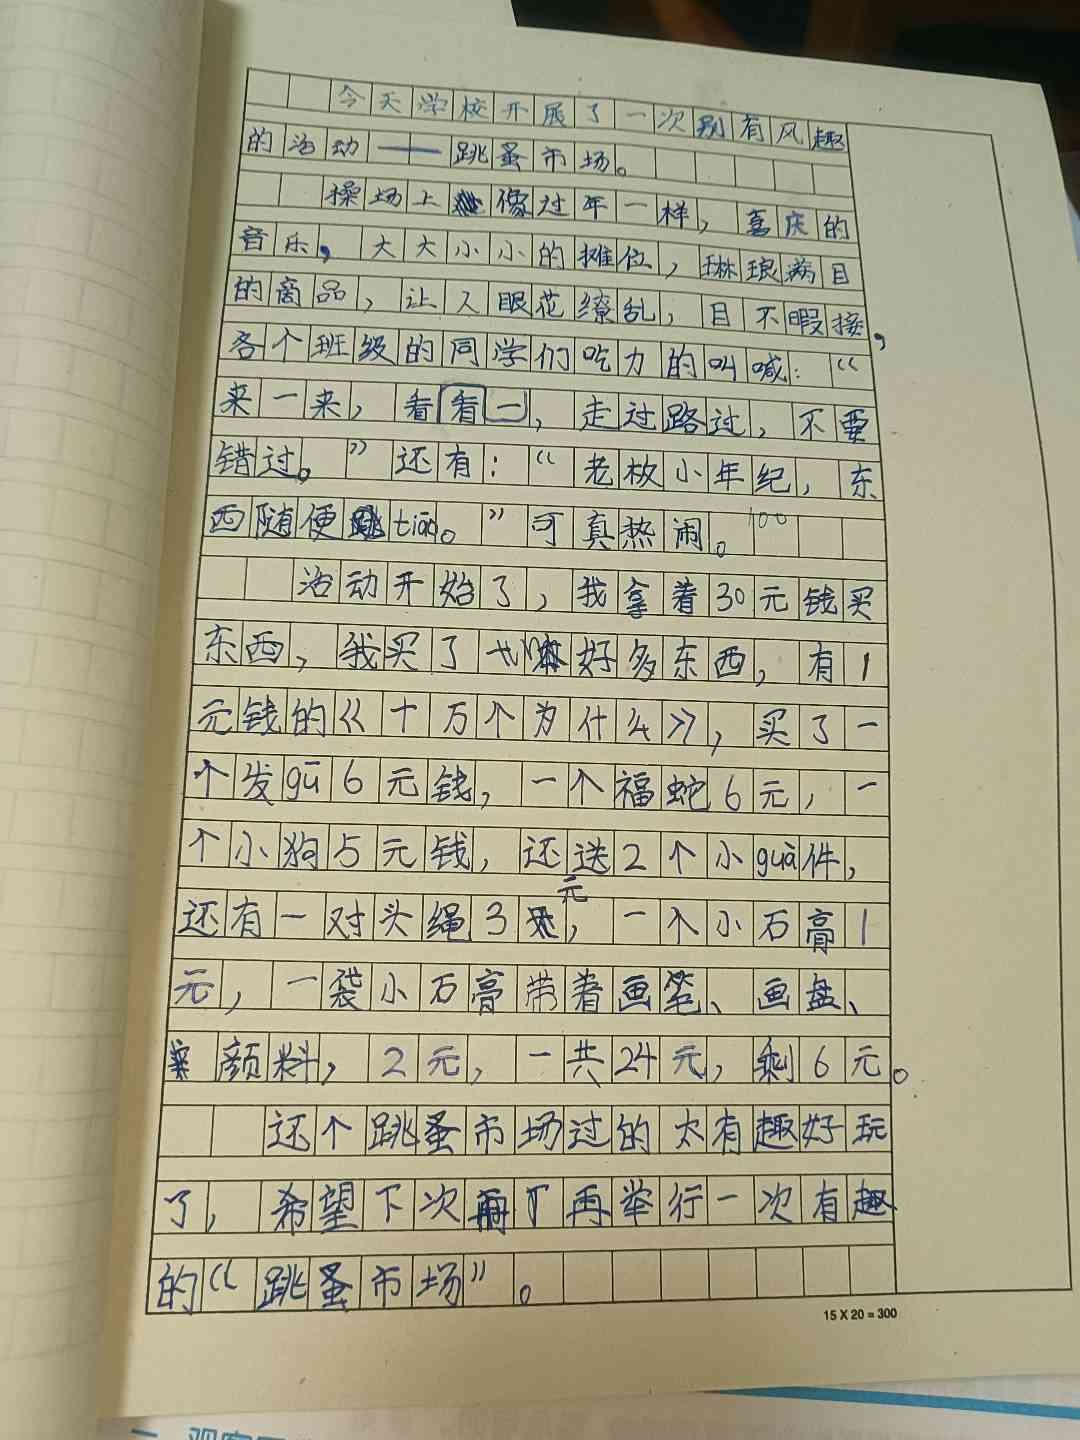 今天学校开展了一次别有风趣
的活动——跳蚤市场。
操场上像过年一样，喜庆的
音乐，大大小小的摊位，琳琅满目
的商品，让人眼花缭乱，目不暇接，
各个班级的同学们吃力的叫喊：“
来一来，看看一，走过路过，不要
错过。”还有：“老板小年纪，东
西随便tiāo。”可真热闹。100
活动开始了，我拿着30元钱买
东西，我买了好多东西，有1
元钱的《十万个为什么》，买了一
个发gū6元钱，一个福蛇6元，一
个小狗5元钱，还送2个小guà件，
元
还有一对头绳3，一个小石膏1
元，一袋小石膏带着画笔、画盘、
颜料，2元，一共24元，剩6元。
这个跳蚤市场过的太有趣好玩
了，希望下次再举行一次有趣
的“跳蚤市场”。
15 X 20 = 300